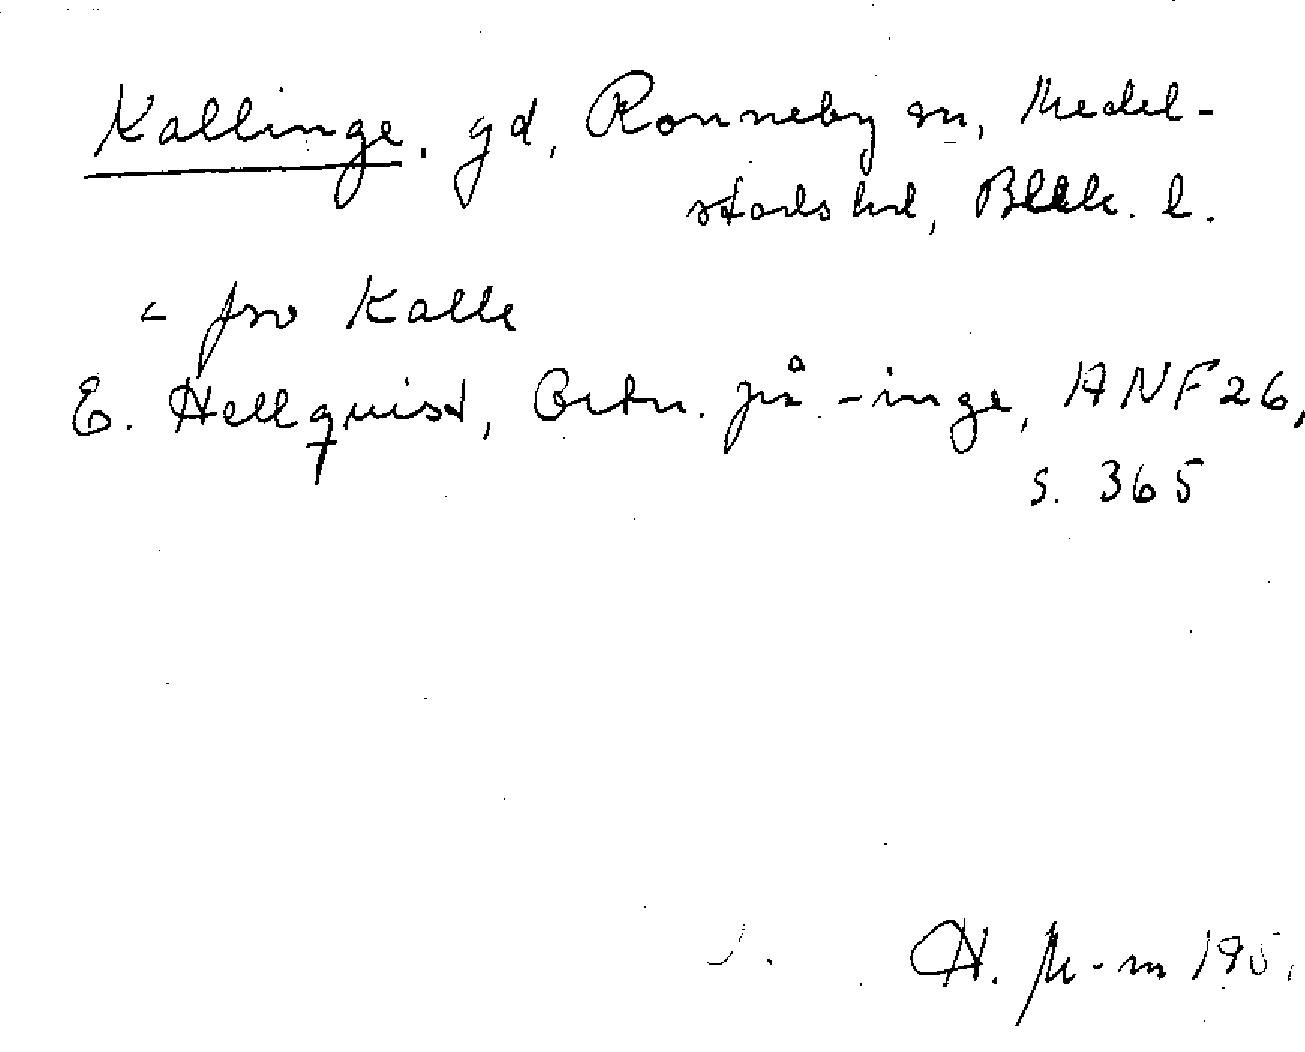 Kallinge. gd, Ronneby sn, Medel-
stads hd, Blek. l.
< fsv Kalle
E. Hellquist, Ortn. på -inge, ANF 26,
s. 365
H. M-m 195